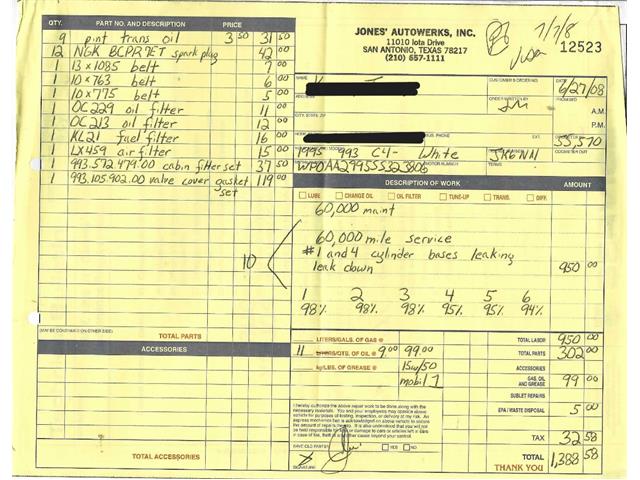 QTY. PART NO. AND DESCRIPTION PRICE
9 pint trans oil 3 50 31 50
12 NGK BCPR7ET spark plug 42 00
1 13 x 1085 belt 7 00
1 10 x 763 belt 6 00
1 10 x 775 belt 5 00
1 OC229 oil filter 11 00
1 OC213 oil filter 12 00
1 KL21 fuel filter 16 00
1 LX459 air filter 15 00
1 993.572.479.00 cabin filter set 37 50
1 993.105.902.00 valve cover gasket set 119 00
10
(MAY BE CONTINUED ON OTHER SIDE)
TOTAL PARTS
ACCESSORIES
JONES' AUTOWERKS, INC.
11010 Iota Drive
SAN ANTONIO, TEXAS 78217
(210) 657-1111
7/7/8
Visa
12523
CUSTOMER'S ORDER NO. DATE
6/27/08
ADDRESS ORDER WRITTEN BY PROMISED
A.M.
CITY, STATE, ZIP P.M.
BUS. PHONE EXT.
55,570
1995 993 C4- White JK6NN
WP0AA2995SS323806
MOTOR NUMBER TERMS
DESCRIPTION OF WORK AMOUNT
LUBE CHANGE OIL OIL FILTER TUNE-UP TRANS. DIFF.
60,000 maint
60,000 mile service
#1 and 4 cylinder bases leaking
leak down 950 00
1 2 3 4 5 6
98% 98% 98% 95% 95% 94%
LITERS/GALS. OF GAS @ TOTAL LABOR 950 00
11 LITERS/QTS. OF OIL @ 9.00 99.00 TOTAL PARTS 302 00
kg/LBS. OF GREASE @ 15w/50 ACCESSORIES
mobil 1 GAS, OIL AND GREASE 99 00
SUBLET REPAIRS
I hereby authorize the above repair work to be done along with the
necessary materials. You and your employees may operate above
vehicle for purposes of testing, inspection, or delivery at my risk. An
express mechanic's lien is acknowledged on above vehicle to secure
the amount of repairs thereto. It is also understood that you will not
be held responsible for loss or damage to cars or articles left in cars
in case of fire, theft or any other cause beyond your control.
EPA / WASTE DISPOSAL 5 00
TAX 32 58
SAVE OLD PARTS YES NO
SIGNATURE X
TOTAL 1,388 58
THANK YOU